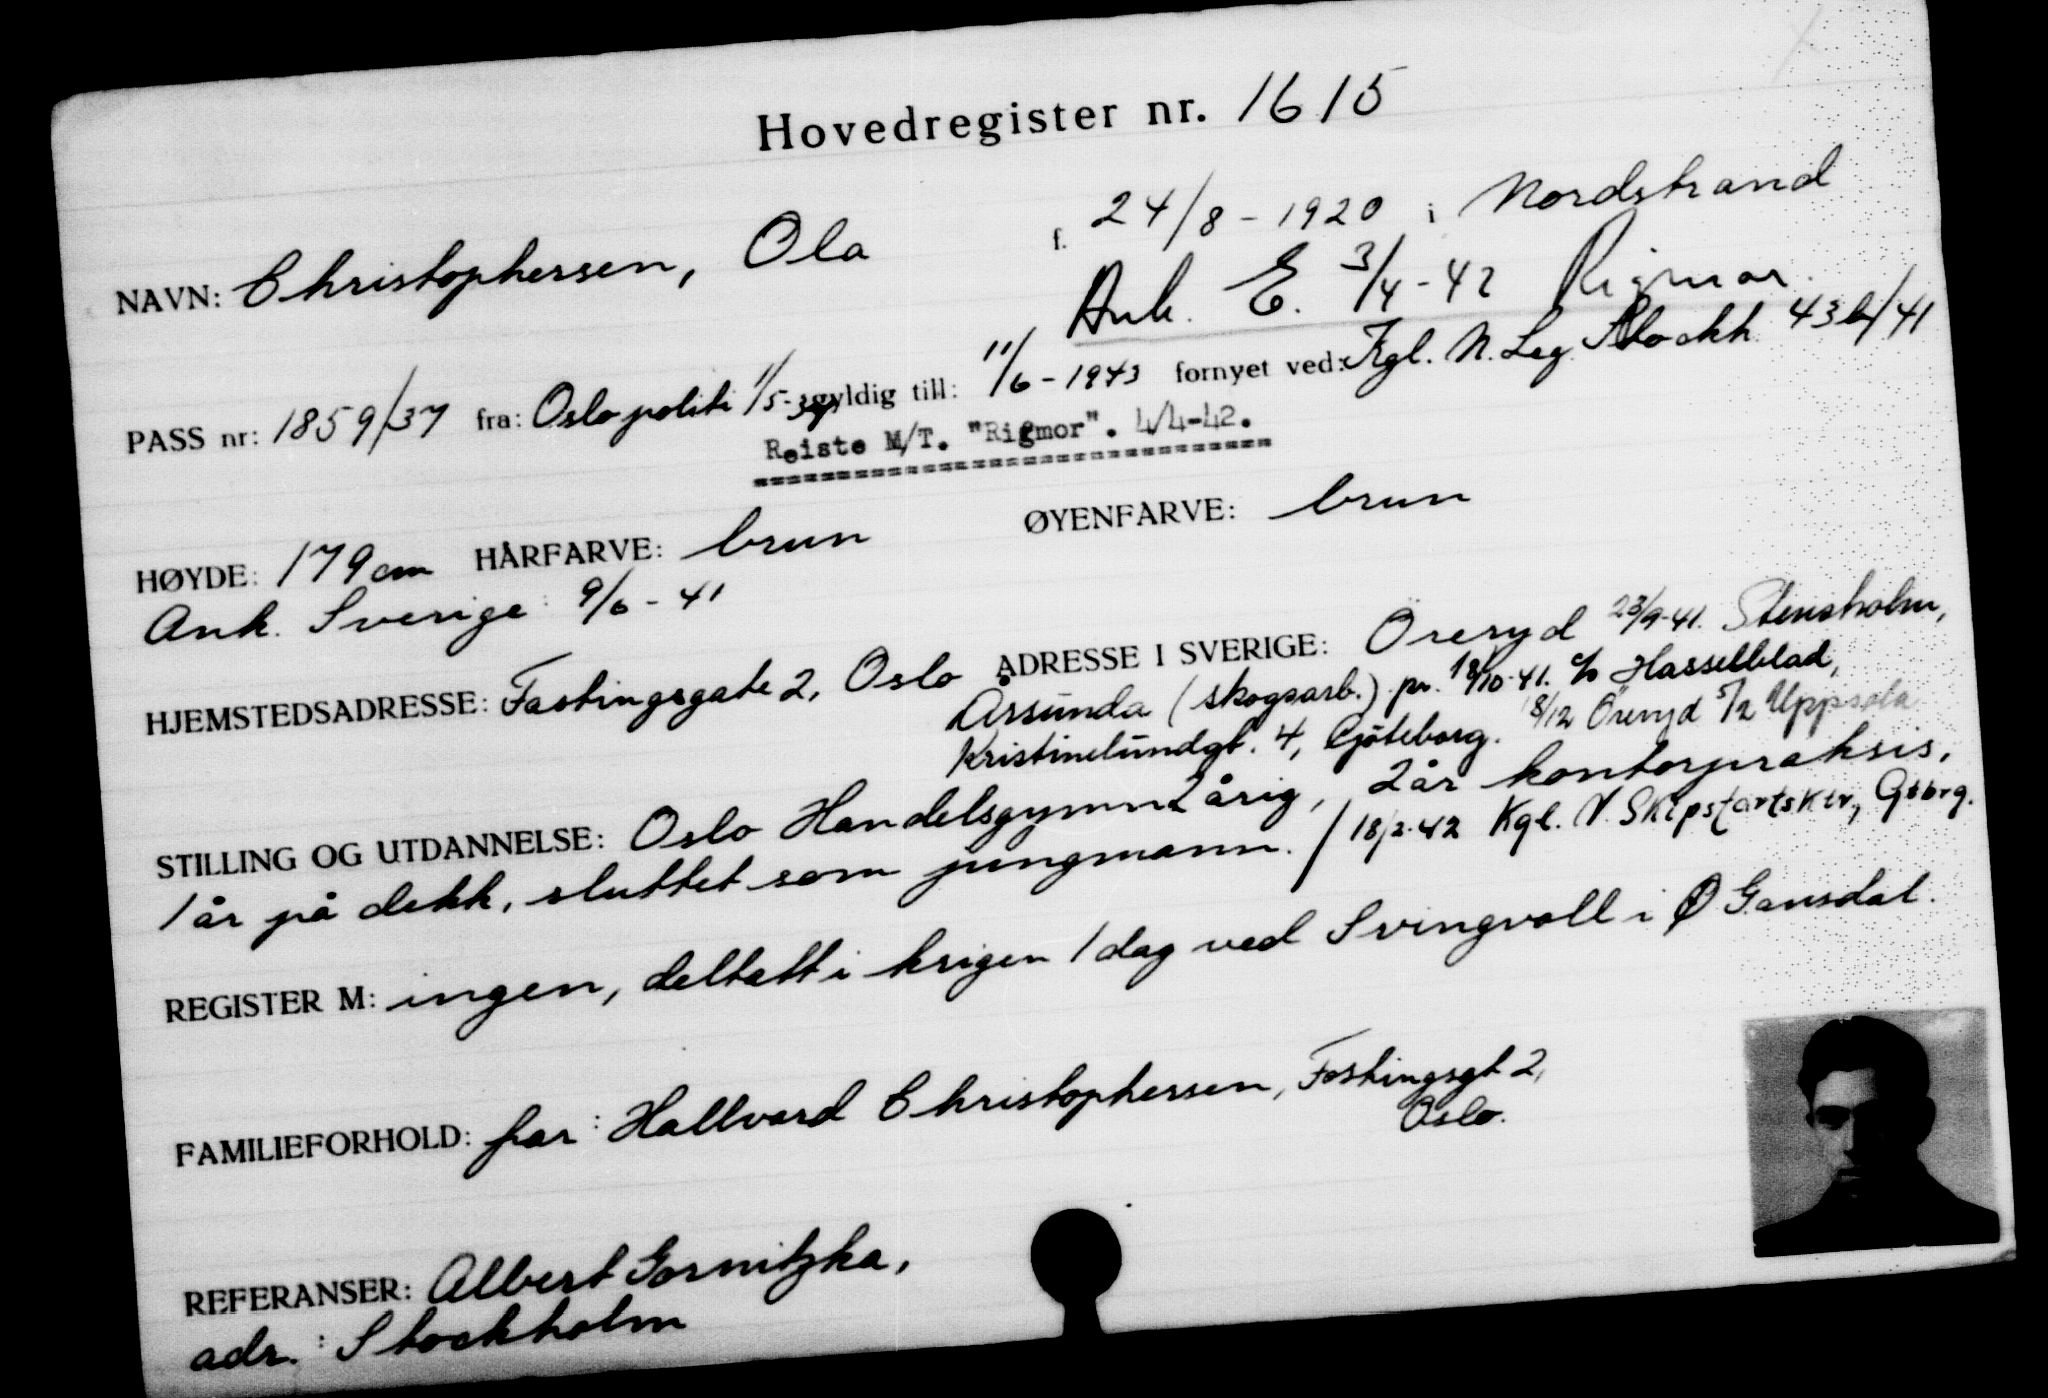 Hovedregister nr. 1615
NAVN: Christophersen, Ola f. 24/8-1920 i Nordstrand
Ank. E. 3/4-42 Rigmor.
PASS nr: 1859/37 fra: Oslo politi 1/5-37 gyldig till: 11/6-1943 fornyet ved: Kgl. N. Leg. Stockh. 43b/41
Reiste M/T. "Rigmor". 4/4-42.
HØYDE: 179 cm HÅRFARVE: brun ØYENFARVE: brun
Ank. Sverige: 9/6-41
HJEMSTEDSADRESSE: Fastingsgate 2, Oslo ADRESSE I SVERIGE: Öreryd 23/9-41. Stensholm,
Årsunda (skogsarb.) pr. 18/10-41. c/o Hasselblad,
Kristinelundgt. 4, Göteborg. 8/12 Öreryd 5/2 Uppsala
STILLING OG UTDANNELSE: Oslo Handelsgymn 2 årig, 2 år kontorpraksis,
1 år på dekk, sluttet som jungmann. / 18/2-42 Kgl. N. Skipsfartsktr, Gtbrg.
REGISTER M: ingen, deltatt i krigen 1 dag ved Svingvoll i Ø Gausdal.
FAMILIEFORHOLD: far: Hallvard Christophersen, Fastingsgt 2,
Oslo.
REFERANSER: Albert Gornitzka,
adr.: Stockholm